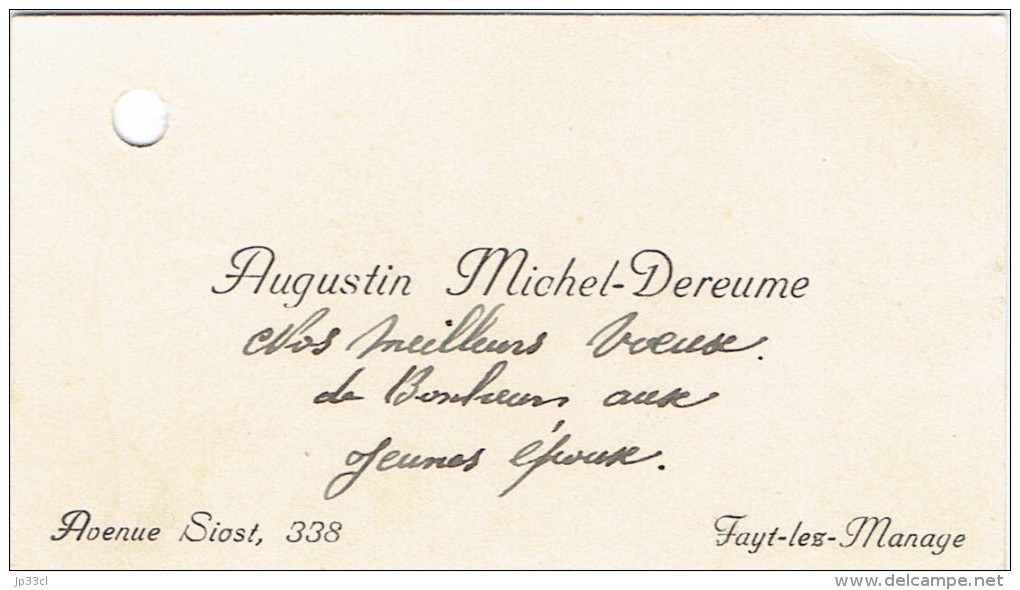 Augustin Michel-Dereume
Nos meilleurs Voeux.
de Bonheur aux
Jeunes époux.
Avenue Siost, 338
Fayt-lez-Manage
jp33cl
www.delcampe.net